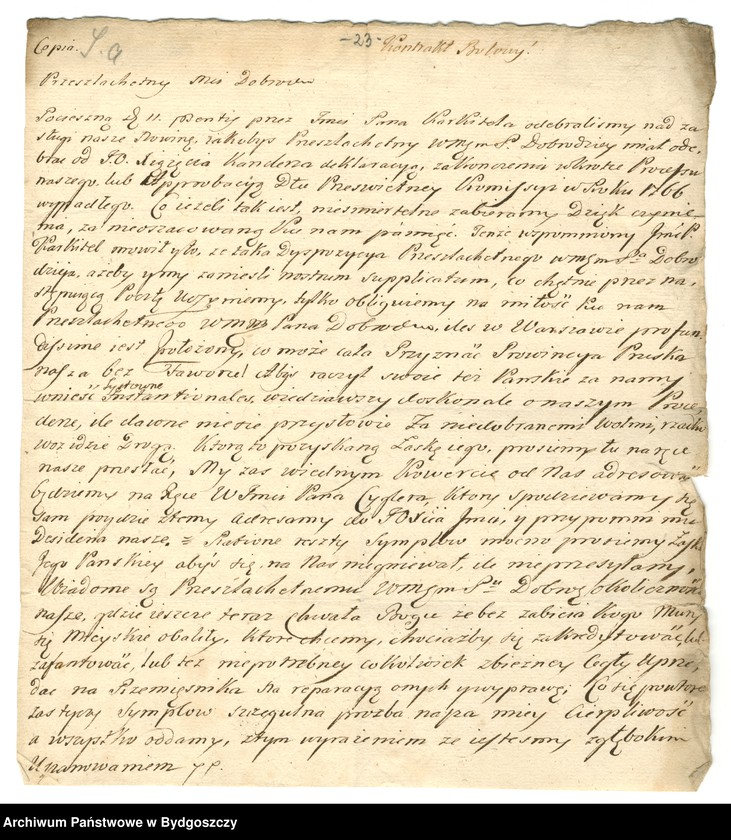 Copia.
-23-
Kontrakt Bełowy!
Przeszlachetny Mci Dobrodzi
Pocieszną 11. przez Imci Pana Karkitela odebralismy nad za
sługi nasze Nowinę, iakobys Przeszlachetny WMgm P. Dobrodziey miał ode,
brac od J.O. Xiążęcia Kanclerza deklaracyą, zakonczenia wkrotce Procesu
naszego, lub Approbacyą Dla Przeswietney Kommissyi w Roku 1766
wypadłego. Co ieżeli tak iest, niesmiertelne zabieramy Dzięk czynie-
nia, za nieoszacowaną Ku nam pamięć. Tenże wspomniony Jmć P.
Karkitel mowił yło, ze taka Dyspozycya Przeszlachetnego WMgm Pa Dobro
dzieja, ażeby y my zaniesli nostrum supplicatum, co chętnie przez na,
stępuiącą Pocztę Uczyniemy, tylko obliguiemy na miłość Ku nam
Przeszlachetnego WMM Pana Dobrodzieja, iles w Warszawie profun,
dissime iest położony, co może cała Przyznać Prowincya Pruska
nasza bez Faworu! Abys raczył swoie też Panskie za nami
wnieść Listowne Instantionales, wiedziawszy doskonale o naszym Proce,
derze, ile dawne niesie przysłowie Za niedobranemi Wołmi, rzadko
woz idzie Drogą. Ktorą to pozyskaną Łaskę iego, prosiemy tu na ręce
nasze przesłać, My zas wiednym Kowercie od Nas adresowa
będziemy na Ręce WImci Pana Cyglera, ktory spodziewamy się
sam poydzie ztemy Adresamy do JOXcia Jmci, y przypomni mu
Desideria nasze. = Ratione reszty Symplow mocno prosiemy Łask
Jego Panskiey abys się na Nas niegniewał, ile nieprzesyłamy,
Wiadome są Przeszlachetnemu WMgm Pu Dobro okolicznosci
nasze, gdzie ieszcze teraz Chwała Bogu że bez zabicia kogo Mury
się Mieyskie obaliły, ktore chcemy, chociażby się zakredytować, lub
zafantować, lub też niepotrzebney cokolwiek zbieżney Cegły Uprze,
dac na Rzemięsnika Na reparacyą onych y wyprawę; Co się powtore
zas tyczy Symplow szczegulna prozba nasza miey Cierpliwość
a wszystko oddamy, ztym wyrażeniem ze iestesmy zgłębokim
Uszanowaniem
Archiwum Państwowe w Bydgoszczy